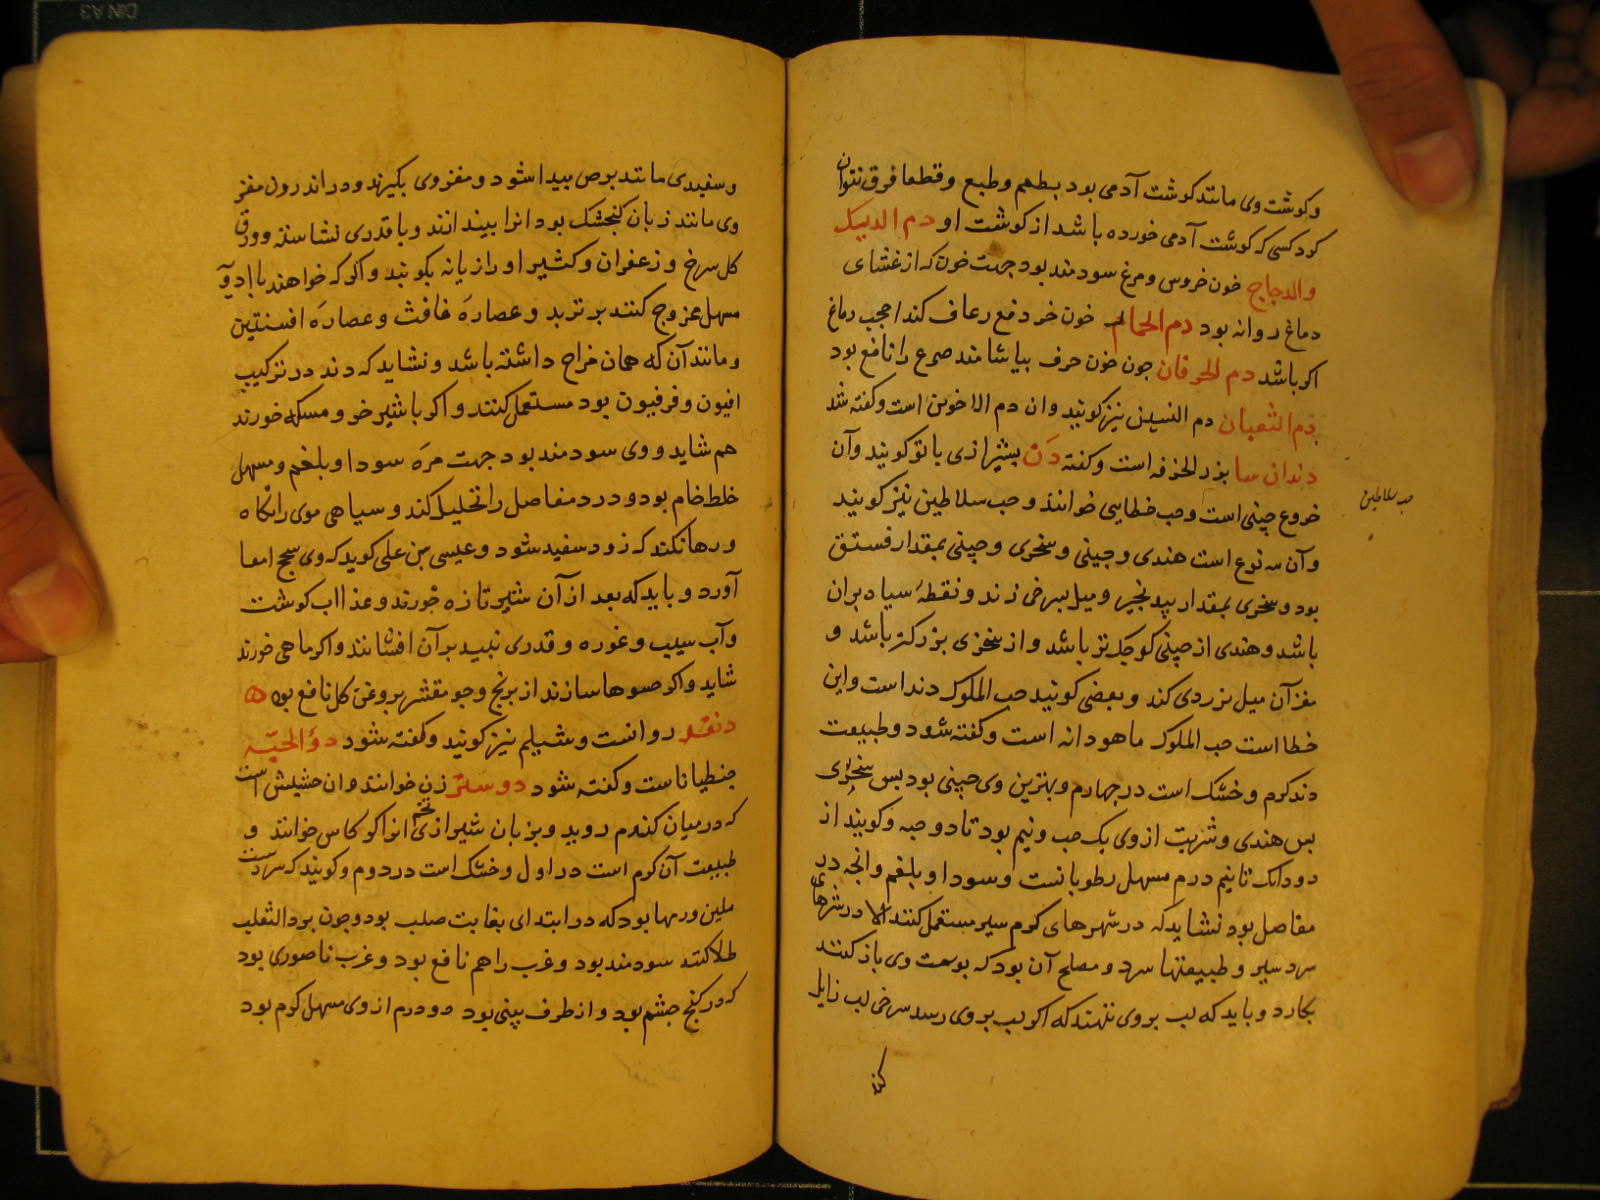 وکوشت وی مانند کوشت آدمی بود بطعم وطبع وقطعا فرق نتوان
کرد کسی که کوشت آدمی خورده باشد از کوشت او دم الدیک
والدجاج خون خروس ومرغ سودمند بود جهت خون که از غشای
دماغ روانه بود دم الحمام خون خر دفع رعاف کند از حجب دماغ
اکر باشد دم الخرفان جون خون خرف بیاشامند صرع را نافع بود
دم الثعبان دم النسین نیز کویند وان دم الاخوین است وکفته شد
دندان سا بزر الخزفه است وکفته دَن بشیرازی باتو کویند وآن
خروع چینی است وحب خطایی خوانند وحب سلاطین نیز کویند
حب سلاطین
وآن سه نوع است هندی وچینی وسنجری وچینی بمقدار فستق
بود وسنجری بمقدار بیدنجیر ومیل بسرخی زند ونقطهٔ سیاه بران
باشد وهندی از چینی کوچک تر باشد واز سنجری بزرکتر باشد و
مغز آن میل بزردی کند وبعضی کویند حب الملوک دند است واین
خطا است حب الملوک ماهودانه است وکفته شود وطبیعت
دند کرم وخشک است در چهارم وبهترین وی چینی بود بس سنجری
بس هندی وشربت از وی یک حب ونیم بود تا دو حبه وکویند از
دو دانک تا نیم درم مسهل رطوبا تست وسودا وبلغم وانجه در
مفاصل بود نشاید که در شهرهای کرم سیر مستعمل کنند الا در شرهای
سرد سیر وطبیعتها سرد ومصلح آن بود که بوست وی باز کنند
بکارد وباید که لب بروی ننهند که اکر لب بروی رسد سرخی لب زایل
کند
وسفیدی مانند برص بیدا شود ومغز وی بکیرند ودر اندرون مغز
وی مانند زبان کنجشک بود انرا بیندازند وبا قدری نشاسته وورق
کل سرخ وزعفران وکثیرا ورازیانه بکوبند واکر که خواهند با ادویهٔ
مسهل ممزوج کنند بر تربد وعصارهٔ غافث وعصارهٔ افسنتین
ومانند آن که همان مزاج داشته باشد ونشاید که دند در ترکیب
افیون وفرفیون بود مستعمل کنند واکر با شیر خر ومسکه خورند
هم شاید ووی سودمند بود جهت مرهٔ سودا وبلغم ومسهل
خلط خام بود ودرد مفاصل را تحلیل کند وسیاهی موی را نکاه
ورها نکند که زود سفید شود وعیسی بن علی کوید که وی سحج امعا
آورد وباید که بعد از آن شیر تازه خورند وعذا اب کوشت
وآب سیب وغوره وقدری نبید بر آن افشانند واکر ماهی خورند
شاید واکر حسوها سازند از برنج وجو مقشر بروغن کل نافع بود
دنقه روانست وشیلم نیز کویند وکفته شود دوالحیه
جنطیاناست وکفته شود دوسر زن خوانند وان حشیش است
که در میان کندم روید وبزبان شیرازی تخم انرا کوکاس خوانند و
طبیعت آن کرم است در اول وخشک است در دوم وکویند که سردست
ملین ورمها بود که در ابتدای بغایت صلب بود وجون بر داء الثعلب
طلا کنند سودمند بود وغرب را هم نافع بود وغرب ناصوری بود
که در کنج جشم بود واز طرف بینی بود دو درم از وی مسهل کرم بود